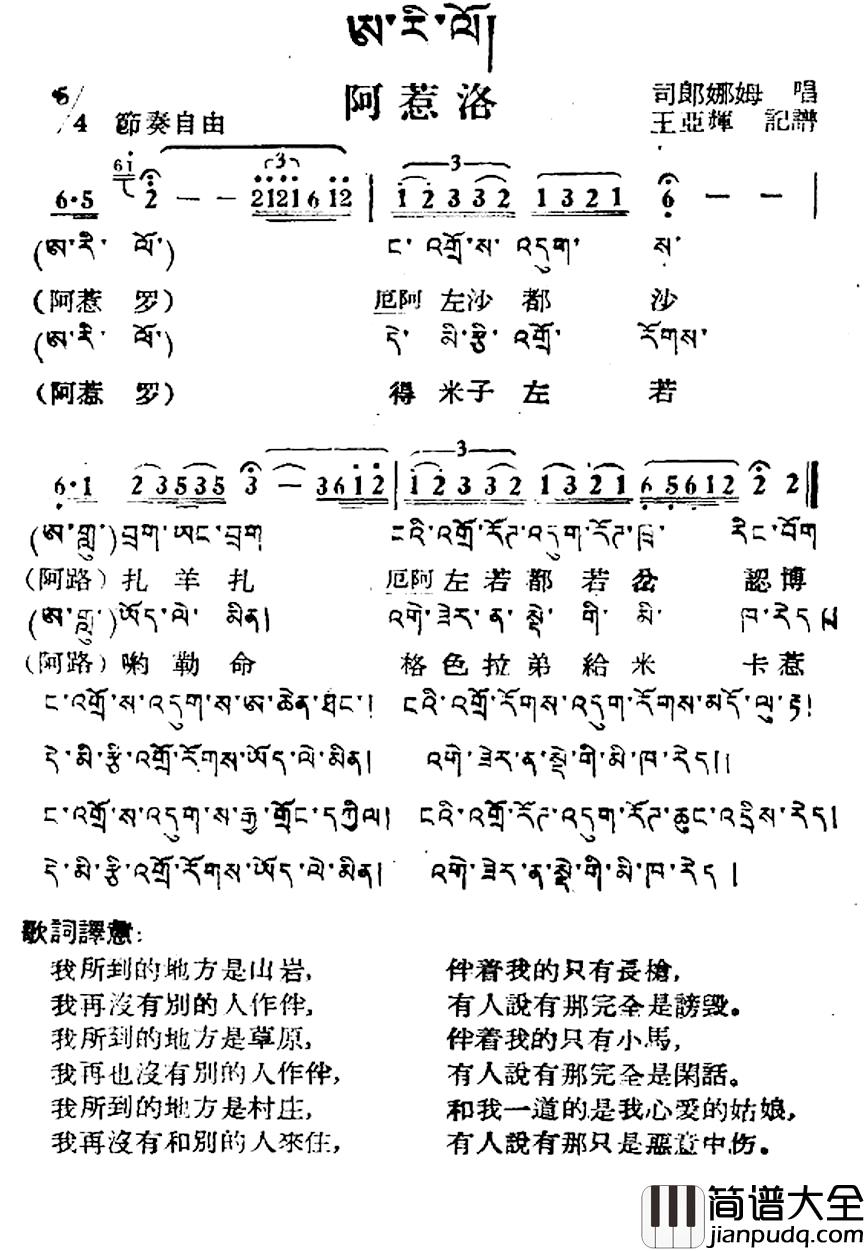 ཨ་རི་ལོ།
阿惹洛
司郎娜姆 唱
5/4 節奏自由
王亞輝 記譜
6·5 61 2 — — 2121612 | 12332 1321 6 — — |
(ཨ་རི་ ལོ་) ང་ འགྲོ་ས་ འདུག་ ས་
(阿惹 罗) 厄阿 左沙 都 沙
(ཨ་རི་ ལོ་) དེ་ མི་རྩི་ འགྲོ་ རོགས་
(阿惹 罗) 得 米子 左 若
6·1 23535 3 — 3612 | 12332 1321 65612 2 2
(ཨ་གླུ་) བྲག་ཡང་བྲག ངའི་འགྲོ་རོཊ་འདུག་རོཊ་ཁྲ་ རིང་བོག
(阿路) 扎羊扎 厄阿 左若都若岔 認博
(ཨ་གླུ་) ཡོད་ལེ་ མིན། འགེ་ཟེར་ན་སྡེ་ གི་ མི་ ཁ་རེད།
(阿路) 喲勒命 格色拉弟給米 卡惹
ང་འགྲོ་ས་འདུག་ས་ཨ་ཆེན་ཐང་། ངའི་འགྲོ་རོགས་འདུག་རོགས་མདོ་ལུ་རྟ།
དེ་མི་རྩི་འགྲོ་རོགས་ཡོད་ལེ་མིན། འགེ་ཟེར་ན་སྡེ་གི་མི་ཁ་རེད།།
ང་འགྲོ་ས་འདུག་ས་རྒྱ་གྲོང་དཀྱིལ། ངའི་འགྲོ་རོཊ་འདུག་རོཊ་ཆུང་འདྲིས་རེད།
དེ་མི་རྩི་འགྲོ་རོགས་ཡོད་ལེ་མིན། འགེ་ཟེར་ན་སྡེ་གི་མི་ཁ་རེད །
歌詞譯意:
我所到的地方是山岩, 伴着我的只有長槍,
我再沒有別的人作伴, 有人說有那完全是謗毀。
我所到的地方是草原, 伴着我的只有小馬,
我再也沒有別的人作伴, 有人說有那完全是閑話。
我所到的地方是村庄, 和我一道的是我心愛的姑娘,
我再沒有和別的人來往, 有人說有那只是惡意中伤。
简谱大全
jianpudq.com